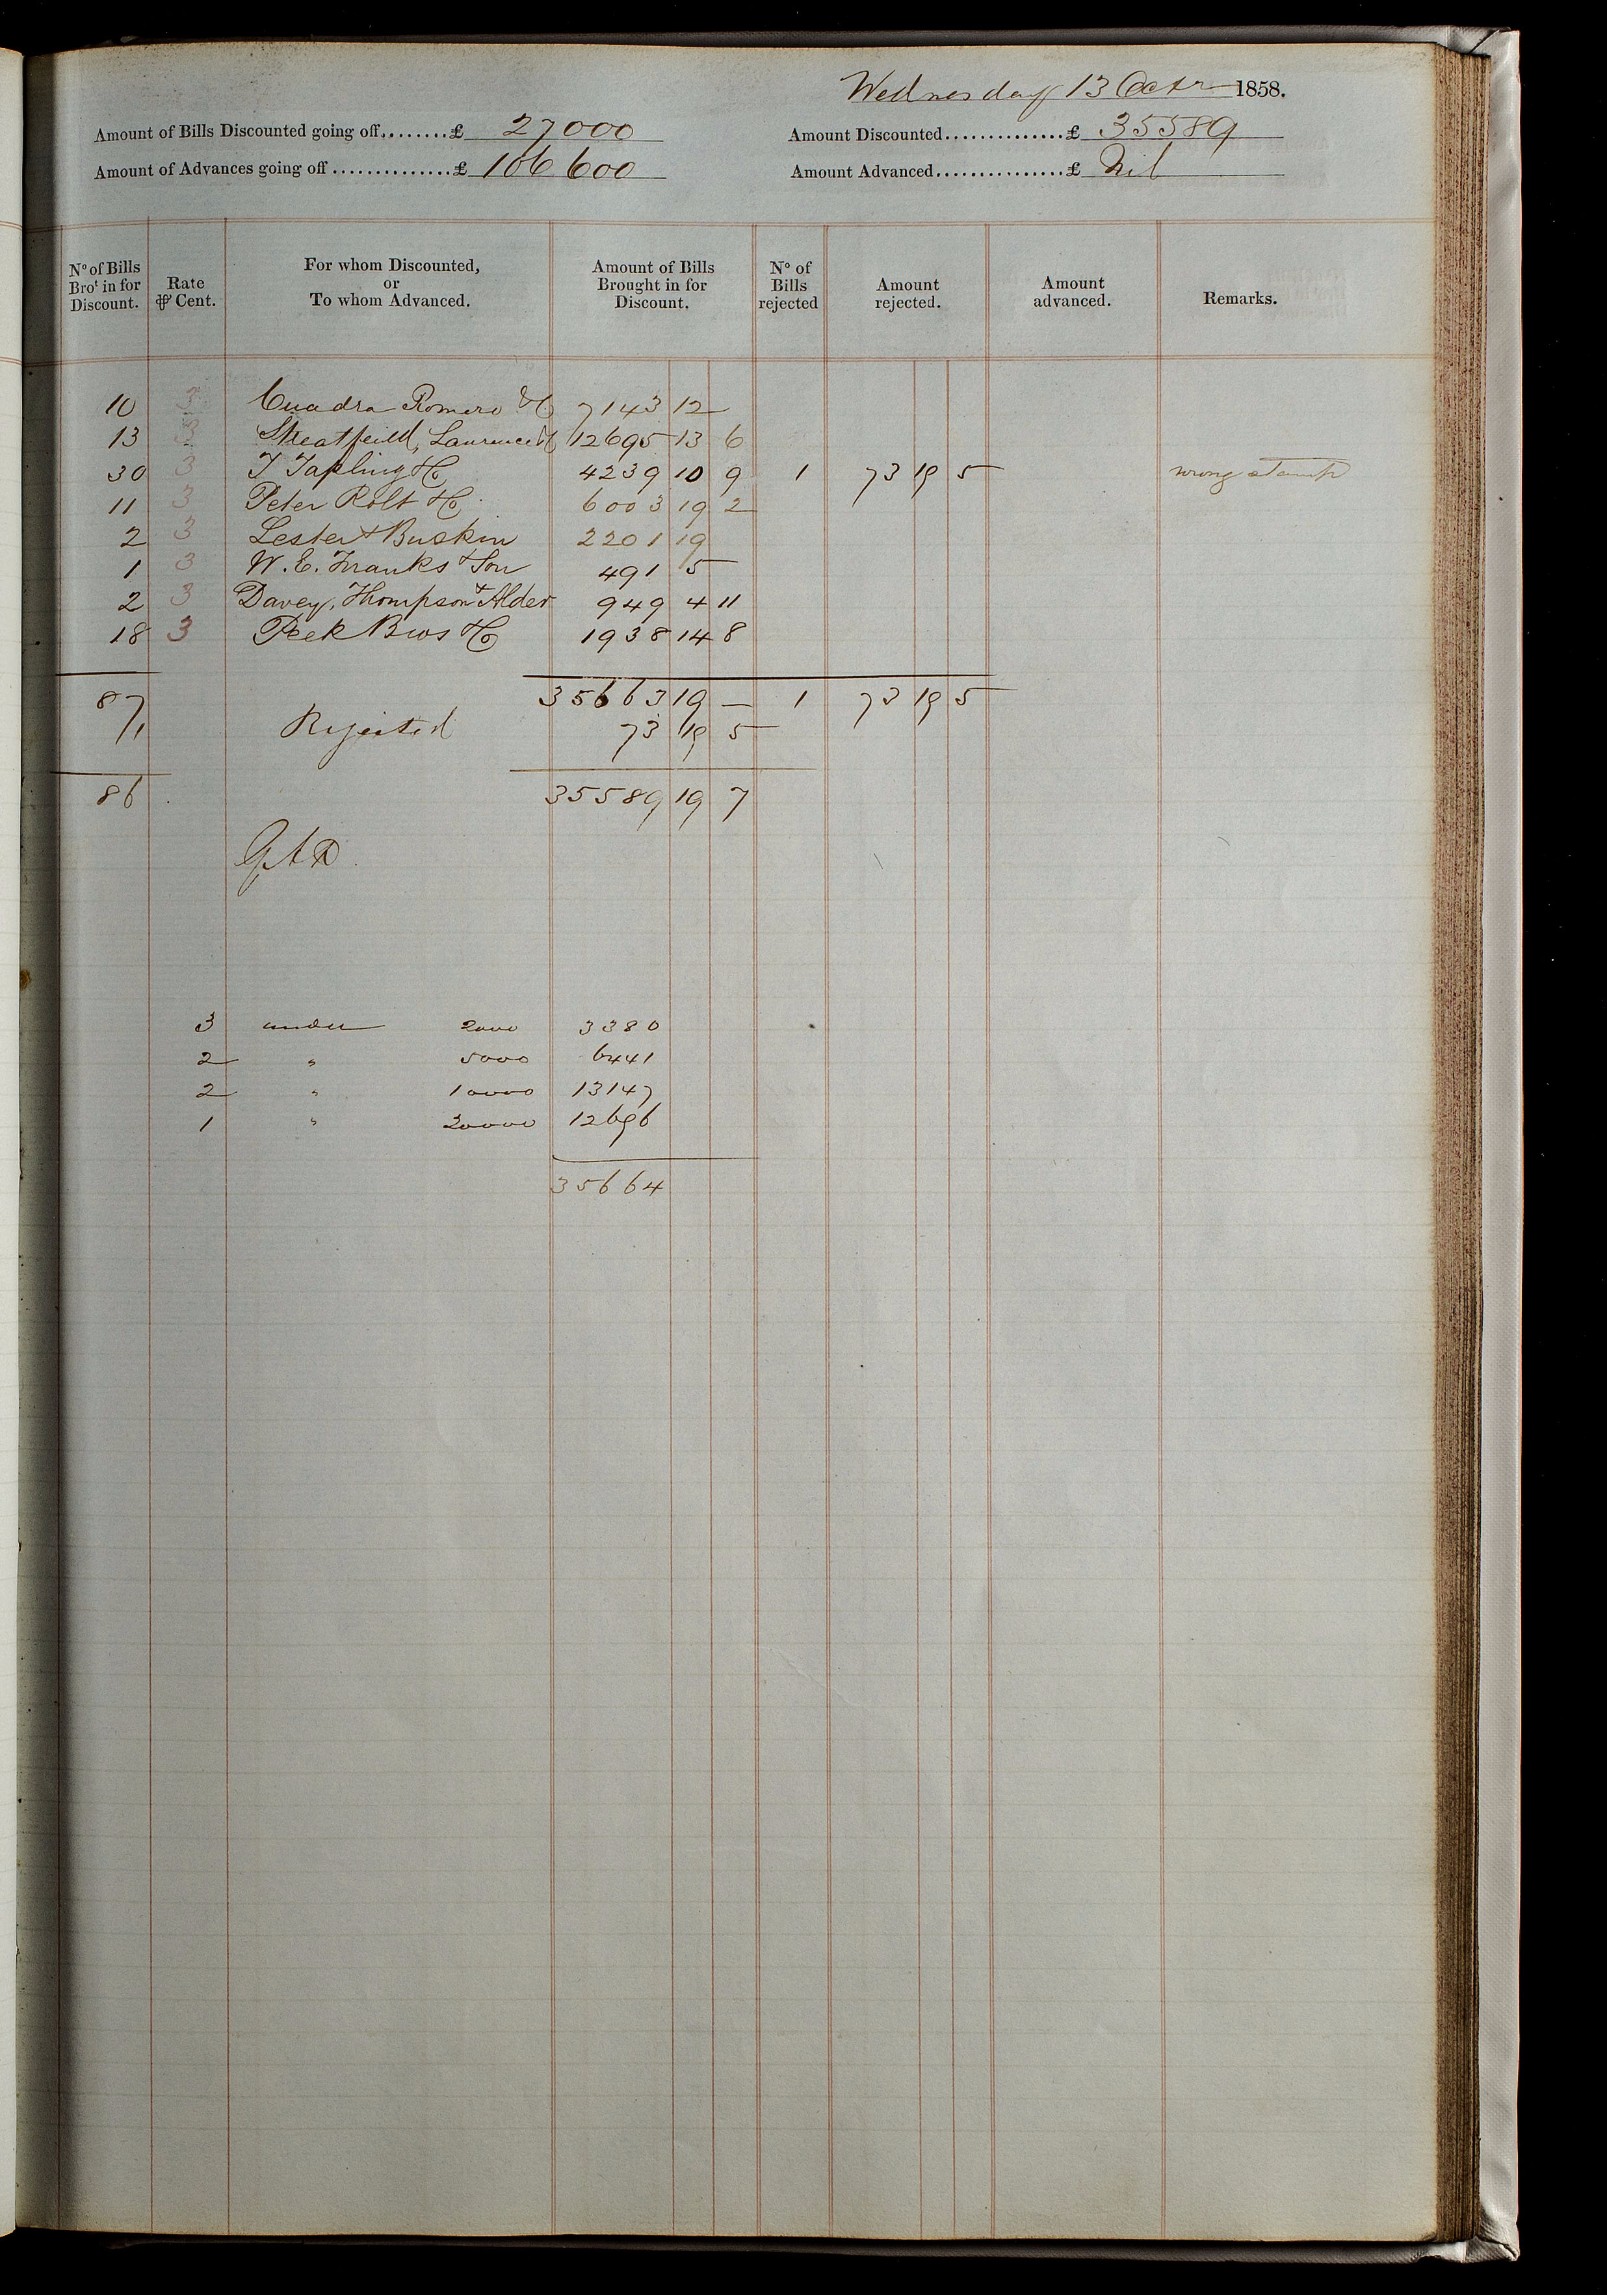 Wednesday 13 Octr 1858.
Amount of Bills Discounted going off........£ 27000 Amount Discounted..............£ 35589
Amount of Advances going off..............£ 106600 Amount Advanced...............£ Nil
No of Bills Brot in for Discount. Rate ⅌ Cent. For whom Discounted, or To whom Advanced. Amount of Bills Brought in for Discount. No of Bills rejected Amount rejected. Amount advanced. Remarks.
10 3 Cuadra Romero & Co 7143 12
13 3 Streatfeild, Laurence & Co 12695 13 6
30 3 T Tapling & Co 4239 10 9 1 73 19 5 wrong stamp
11 3 Peter Rolt & Co 6003 19 2
2 3 Lester & Buskin 2201 19
1 3 W. E. Franks & Son 491 5
2 3 Davey, Thompson & Alder 949 4 11
18 3 Peek Bros & Co 1938 14 8
87 35663 19 — 1 73 19 5
1 Rejected 73 19 5
86 35589 19 7
3 under 2000 3380
2 " 5000 6441
2 " 10000 13147
1 " 20000 12696
35664